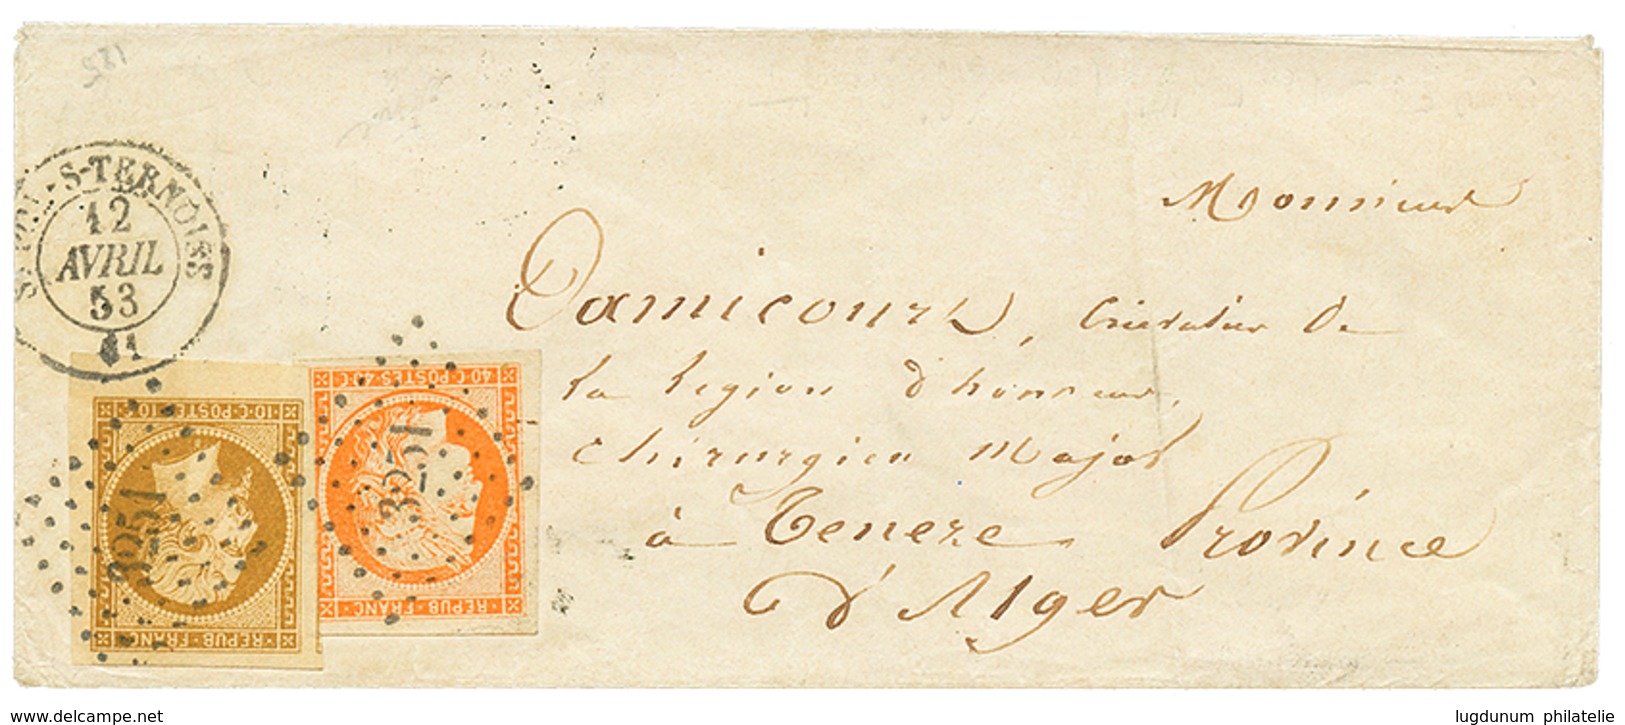 185
S-TERNOISE
12
AVRIL
53
10·C·POSTE·10·C
3251
REPUB·FRANC
40·C·POSTES·40·C
3251
REPUB·FRANC
Monsieur
Damicourt, Chevalier de
la legion d'honneur,
Chirurgien Major
à Tenere Province
d'Alger
www.delcampe.net
lugdunum philatelie